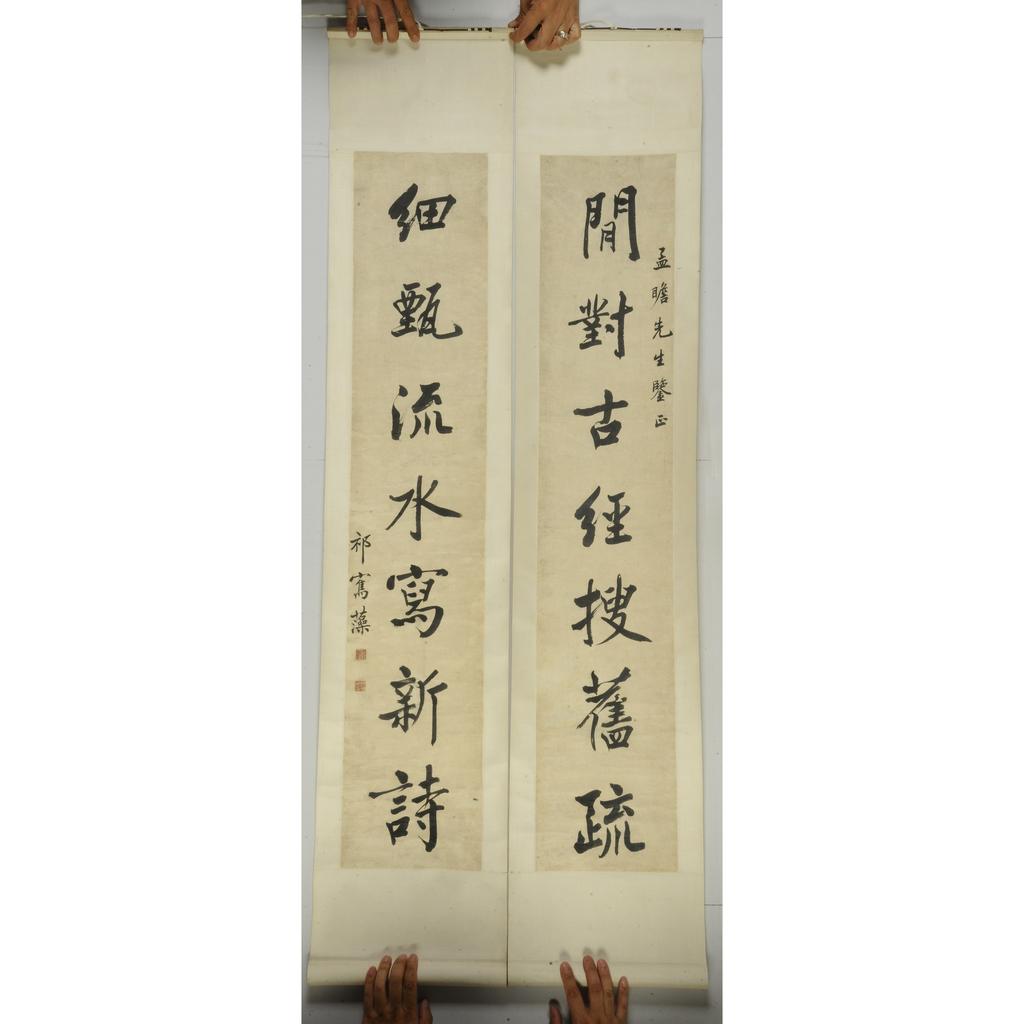 孟瞻先生鑒正
閒對古經搜舊疏
細甄流水寫新詩
祁寯藻